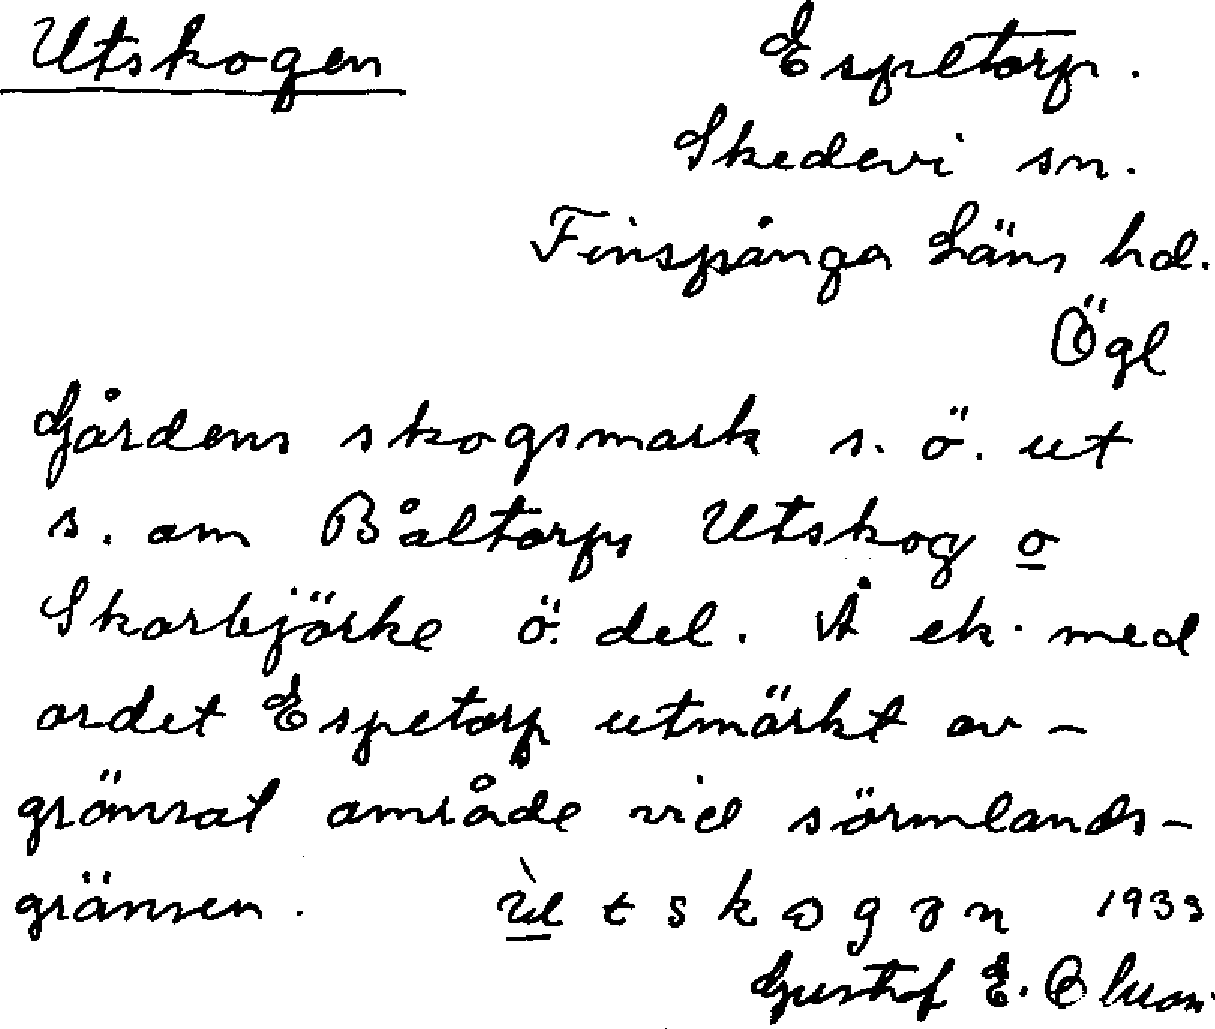 Utskogen Espetorp.
Skedevi sn.
Finspånga Läns hd.
Ögl
Gårdens skogsmark s. ö. ut
s. om Båltorps Utskog o
Skorbjörke ö. del. Å ek. med
ordet Espetorp utmärkt av-
gränsat område vid sörmlands-
gränsen. 1933
Gustaf E. Olson.